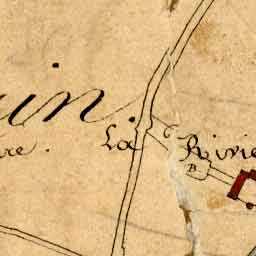 uin.
La Rivie
re.
B